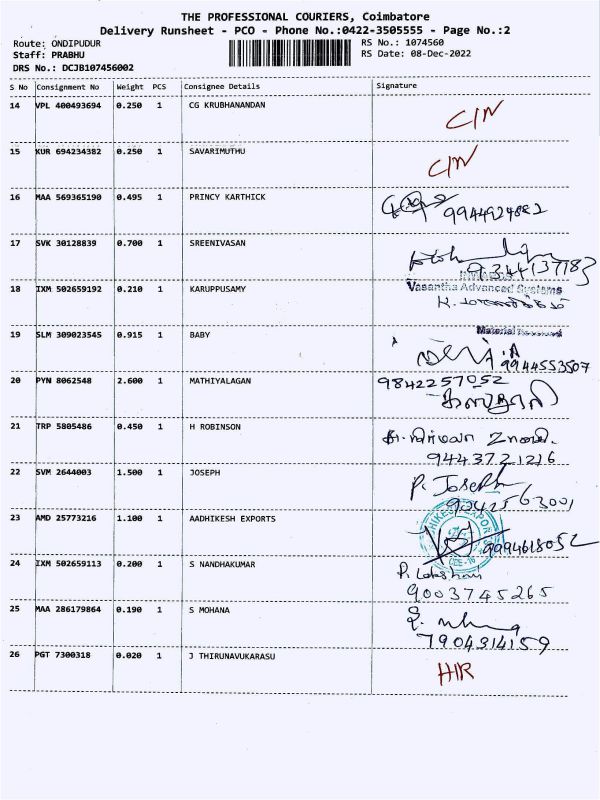 THE PROFESSIONAL COURIERS, Coimbatore
Delivery Runsheet - PCO - Phone No.:0422-3505555 - Page No.:2
Route: ONDIPUDUR
RS No.: 1074560
Staff: PRABHU
RS Date: 08-Dec-2022
DRS No.: DCJB107456002
S No Consignment No Weight PCS Consignee Details Signature
14 VPL 400493694 0.250 1 CG KRUBHANANDAN C/N
15 KUR 694234382 0.250 1 SAVARIMUTHU C/N
16 MAA 569365190 0.495 1 PRINCY KARTHICK 9944924882
17 SVK 30128839 0.700 1 SREENIVASAN
9344137183
18 IXM 502659192 0.210 1 KARUPPUSAMY Vasantha Advanced Systems
19 SLM 309023545 0.915 1 BABY Material Received
9944553507
20 PYN 8062548 2.600 1 MATHIYALAGAN 9842257052
21 TRP 5805486 0.450 1 H ROBINSON
9443721216
22 SVM 2644003 1.500 1 JOSEPH P. Joseph
9042563001
23 AMD 25773216 1.100 1 AADHIKESH EXPORTS 9994618052
24 IXM 502659113 0.200 1 S NANDHAKUMAR P. Lakshmi
9003745265
25 MAA 286179864 0.190 1 S MOHANA
7904314159
26 PGT 7300318 0.020 1 J THIRUNAVUKARASU HIR